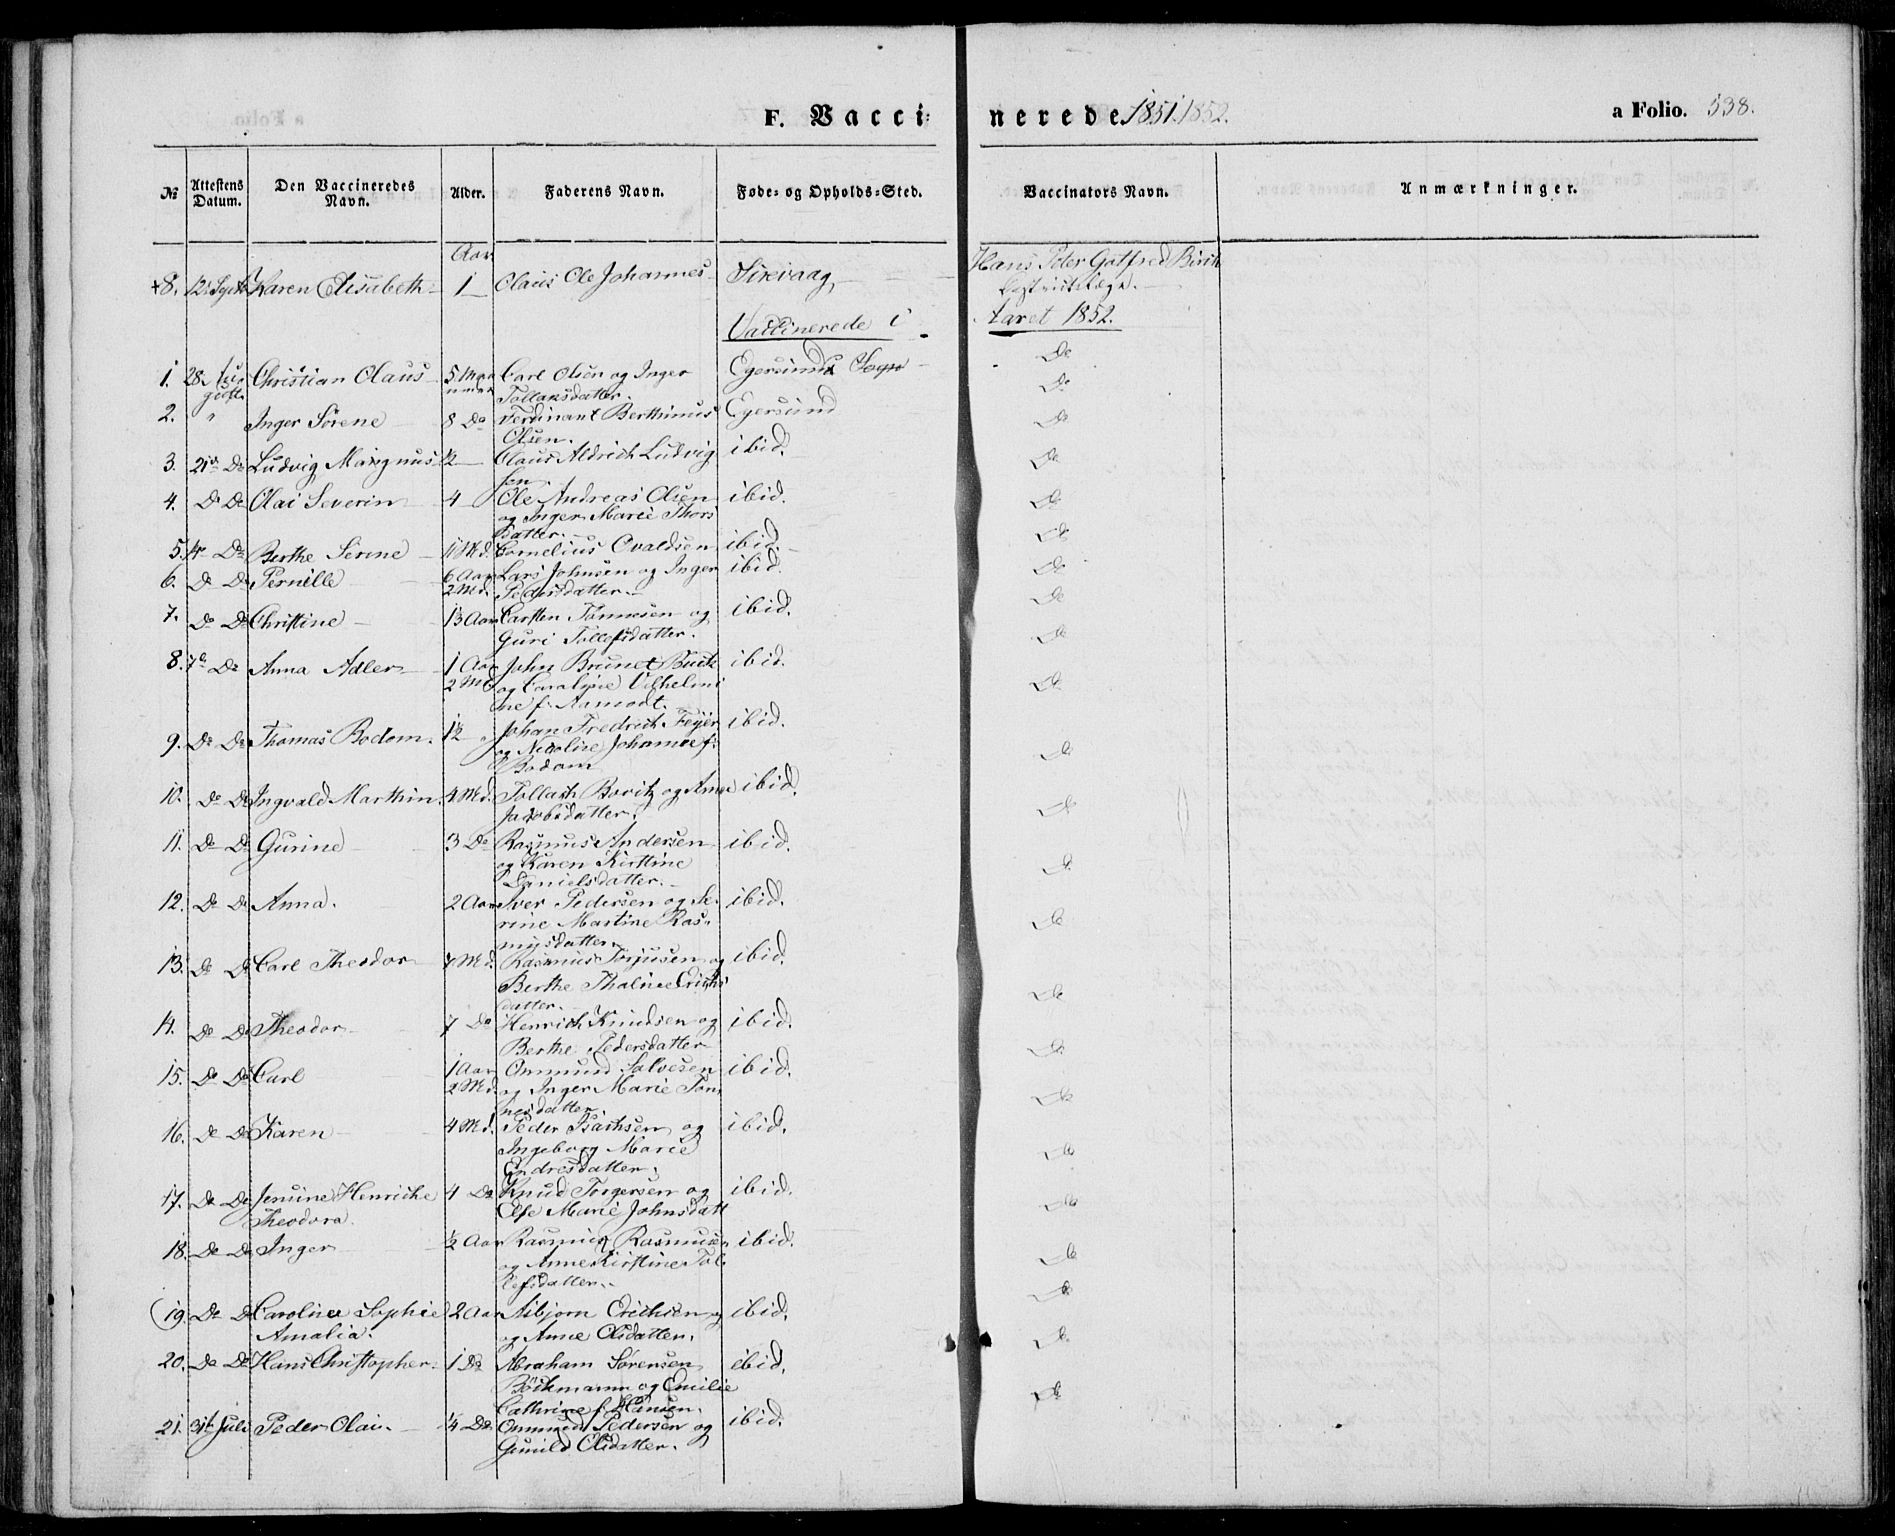 F. Vacci=
nerede 1851. 1852.
a Folio. 538.
№
Attestens Datum.
Den Vaccineredes Navn.
Alder.
Faderens Navn.
Føde- og Opholds-Sted.
Vaccinators Navn.
Anmærkninger.
Aar
+8. 12 Septb Karen Elisabeth 1 Claus Ole Johannes Sirevaag Hans Peter Gotfred Birch
Districtslæge.
Vaccinerede i Aaret 1852.
1. 28. Au Christian Olaus 5 Maa Carl Olsen og Inger Egersunds Sogn Do
gust. neder Tollaksdatter. Do
2. " Inger Sørene 8 Do Ferdinant Berthinus Egersund Do
Olsen.
3. 21de Do Ludvig Magnus ½ Claus Aldrich Ludvig ibid. Do
sen.
4. Do Do Olai Severin 4 Ole Andreas Olsen ibid. Do
og Inger Marie Thors
datter.
5. Do Berthe Serine 11 Md. Cornelius Ovaldsen ibid. Do
6. Do Do Pernille 6 Aar Lars Johnsen og Inger ibid. Do
2 Md. Pedersdatter.
7. Do Do Christine 13 Aar Carsten Tønnesen og ibid. Do
Guri Tollefsdatter.
8. 7de Do Anna Adler 1 Aar John Brunet ibid. Do
2 Md og Caroline Vilhelmi
ne f. Aamodt.
9. Do Do Thomas Bodom. 1½ Johan Fredrich Feyer ibid. Do
og Nicoline Johanne f.
Bodom
10. Do Do Ingvald Marthin. 4 Md. Tollach og Anne ibid. Do
Jakobsdatter.
11. Do Do Gurine 3 Do Rasmus Andersen ibid. Do
og Karen Kirstine
Danielsdatter.
12. Do Do Anna. 2 Aar Iver Pedersen og Se- ibid. Do
rine Martine Ras-
musdatter.
13. Do Do Carl Theodor 7 Md. Rasmus Torjusen og ibid. Do
Berthe Thaline Erichs
datter.
14. Do Do Theodor 7 Do Henrich Knudsen og ibid. Do
Berthe Pedersdatter
15. Do Do Carl 1 Aar Ommund Salvesen ibid. Do
2 Md. og Inger Marie Tøn
nesdatter
16. Do Do Karen 4 Md. Peder Isachsen og ibid. Do
Ingeborg Marie
Endresdatter.
17. Do Do Jensine Henriche 4 Do Knud Torgersen og ibid. Do
Theodora. Else Marie Johnsdatt
18. Do Do Inger ½ Aar Rasmus Rasmusen ibid. Do
og Anne Kirstine Tol
lefsdatter.
(19. Do Do Caroline Sophie 2 Aar Asbjørn Erichsen ibid. Do
Amalia. og Anne Olsdatter.
20. Do Do Hans Christopher. 1 Do Abraham Sørensen ibid. Do
Böckmann og Emilie
Cathrine f. Hansen.
21. 31te Juli Peder Olai. ¼ Do Ommund Pedersen og ibid. Do
Gunild Olsdatter.